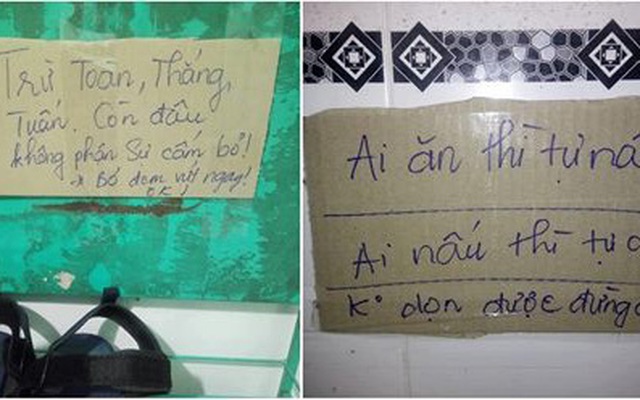 Trừ Toàn, Thắng,
Tuấn. Còn đâu
không phận Sự cấm bỏ!
→ Bỏ đem vứt ngay!
OK!
Ai ăn thì tự
Ai nấu thì tự
K° dọn được đừng